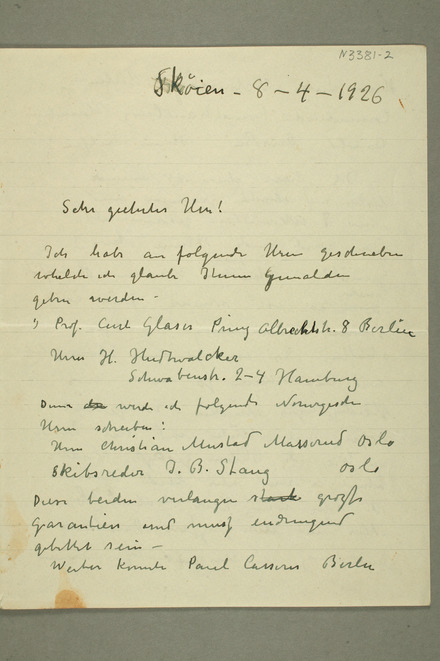 N3381-2
Sköien - 8 - 4 - 1926
Sehr geehrter Herr!
Ich habe an folgende Herrn geschrieben
welche ich glaube Ihnen Gemälden
geben werden -
1) Prof. Curt Glaser Prinz Albrechtstr. 8 Berlin
Herrn H. Hudtwalcker
Schwabenstr. 2-4 Hamburg
Dann werde ich folgende Norwegischen
Herrn schreiben:
Herrn Christian Mustad Masserud Oslo
Skibsreder J. B. Stang Oslo
Diese beiden verlangen große
Garantien und muss eindringend
gebittet sein -
Weiter konnte Paul Cassirer Berlin